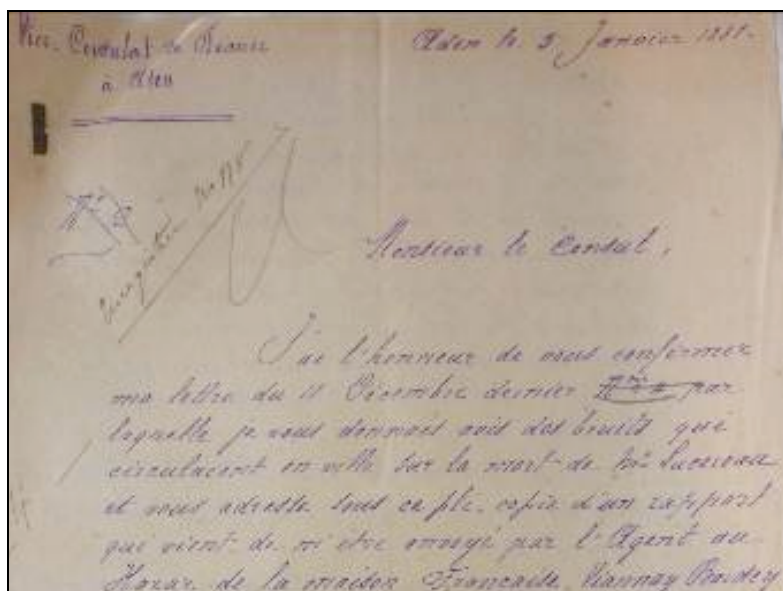 Vice-Consulat de France
à Aden
Aden le 5 Janvier 1881.
Enregistré No
Monsieur le Consul,
J'ai l'honneur de vous confirmer
ma lettre du 11 Décembre dernier par
laquelle je vous donnais avis des bruits qui
circulaient en ville sur la mort de Mr Lucereau
et vous adresse sous ce pli, copie d'un rapport
qui vient de m'être envoyé par l'Agent au
Harar de la maison Française, Viannay Bardey